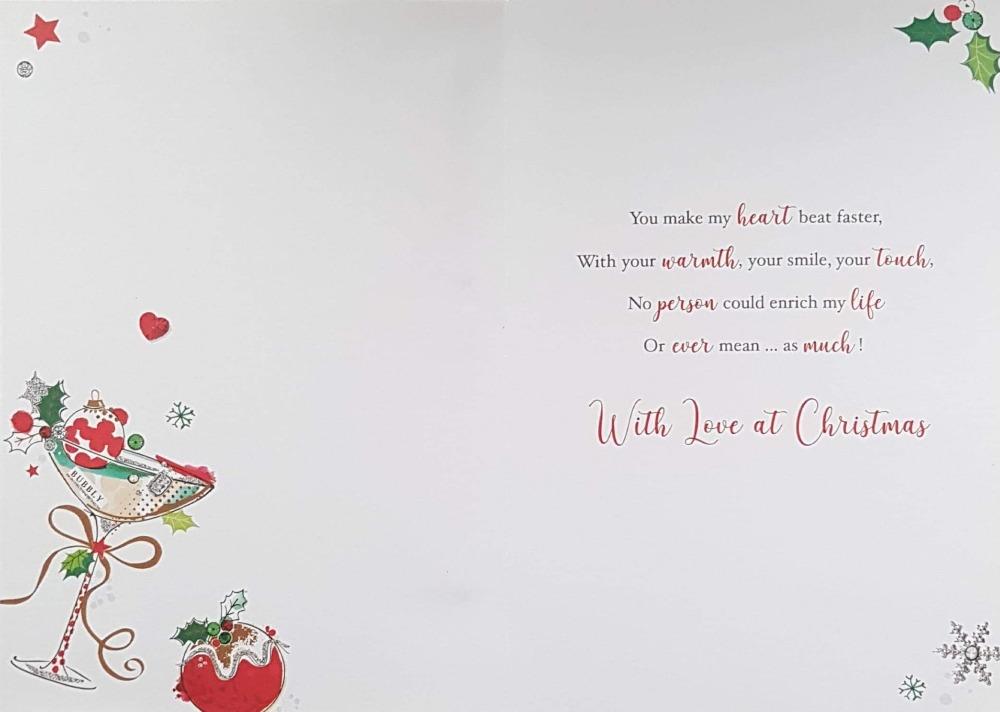 BUBBLY
You make my heart beat faster,
With your warmth, your smile, your touch,
No person could enrich my life
Or ever mean ... as much!
With Love at Christmas